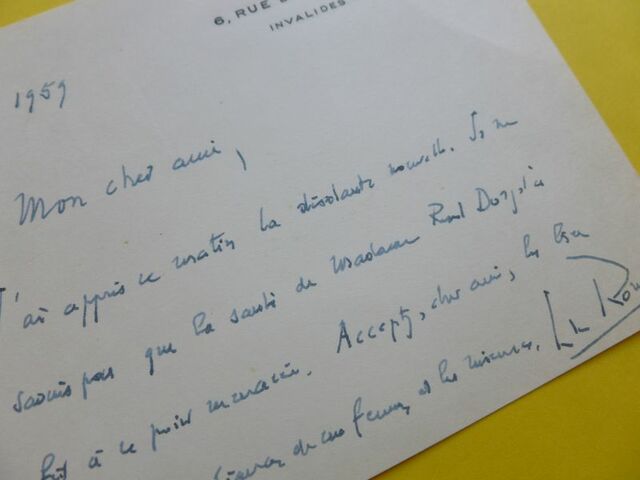 6, RUE
INVALIDES
1959
Mon cher ami,
J'ai appris ce matin la désolante nouvelle. Je ne
savais pas que la santé de Madame Roland Dorgelès
fût à ce point menacée. Accepte, cher ami, les
de ma femme, et les miennes.